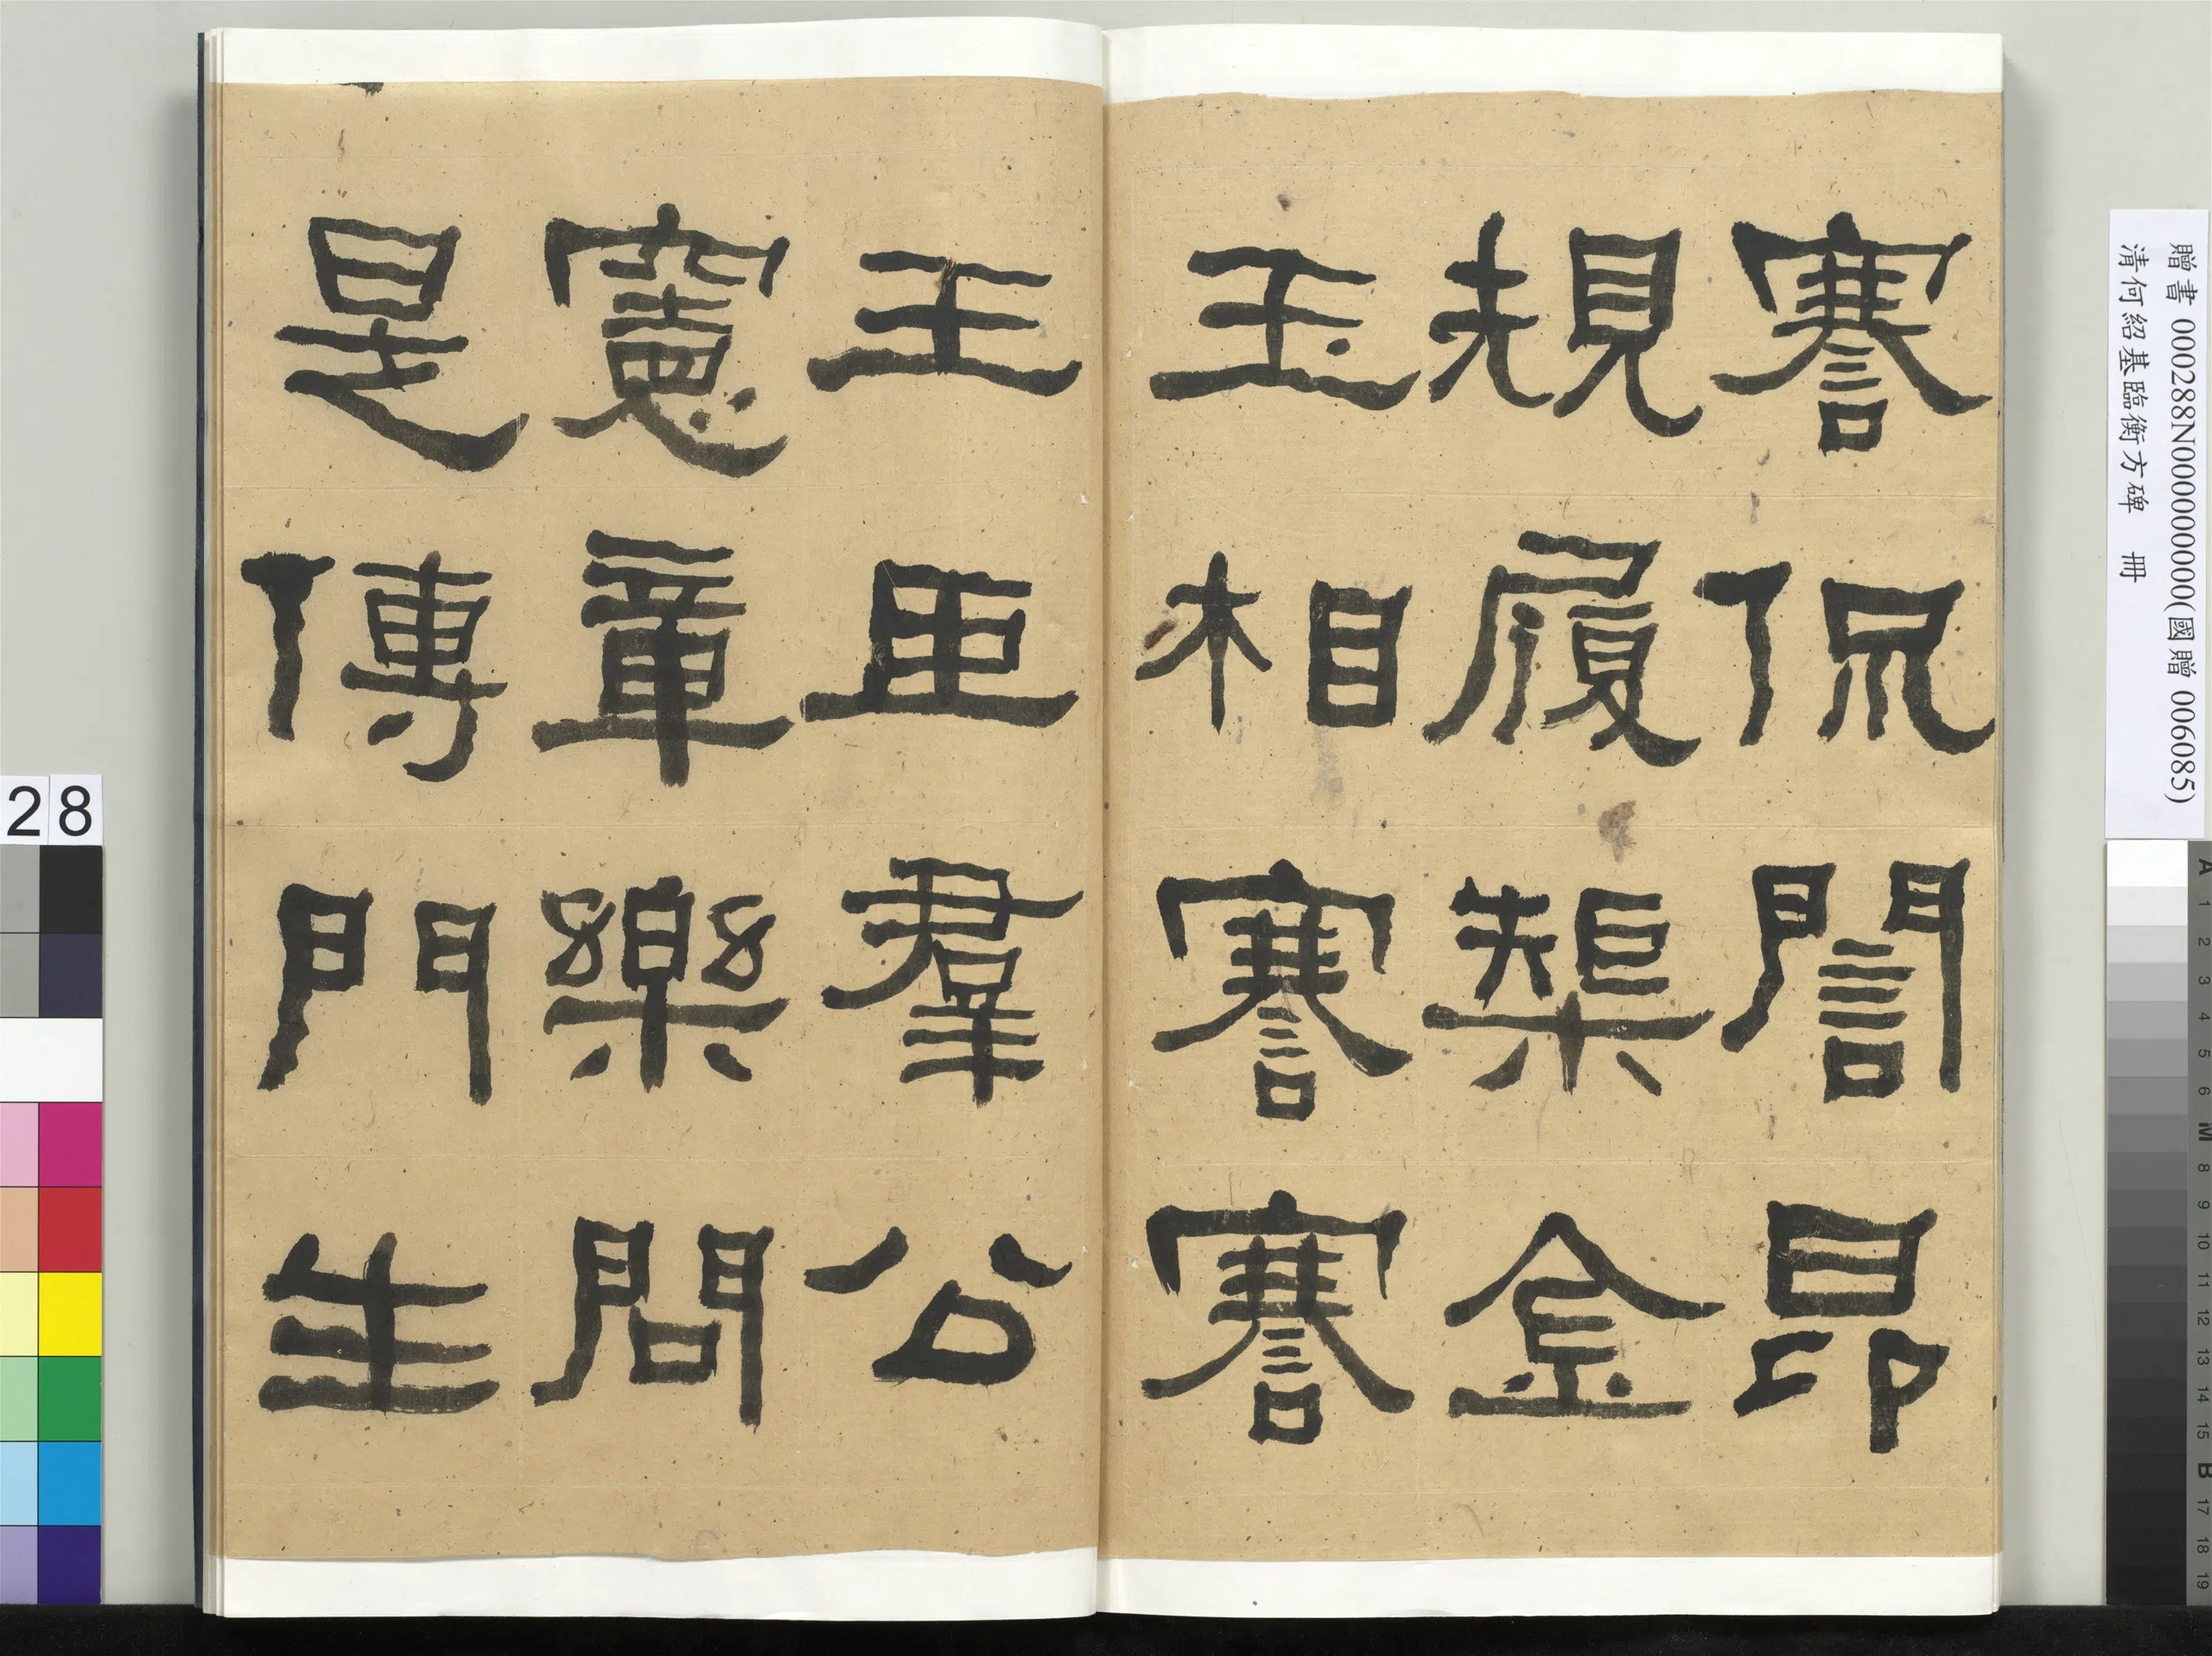 謇侃誾昂
規履榘金
玉相謇謇
王臣羣公
憲章樂問
是傳門生
贈書 000288N000000000(國贈 006085)
清何紹基臨衡方碑 冊
28
A 1 2 3 4 5 6 M 8 9 10 11 12 13 14 15 B 17 18 19